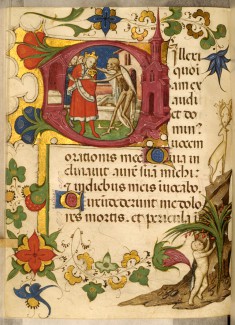 Dilexi
quoni
am ex
audi
et do
min?
uocem
orationis mee Quia in
clinauit aurē suā michi:
⁊ in diebus meis inuocabo.
Circūdederunt me dolo
res mortis. et pericula i